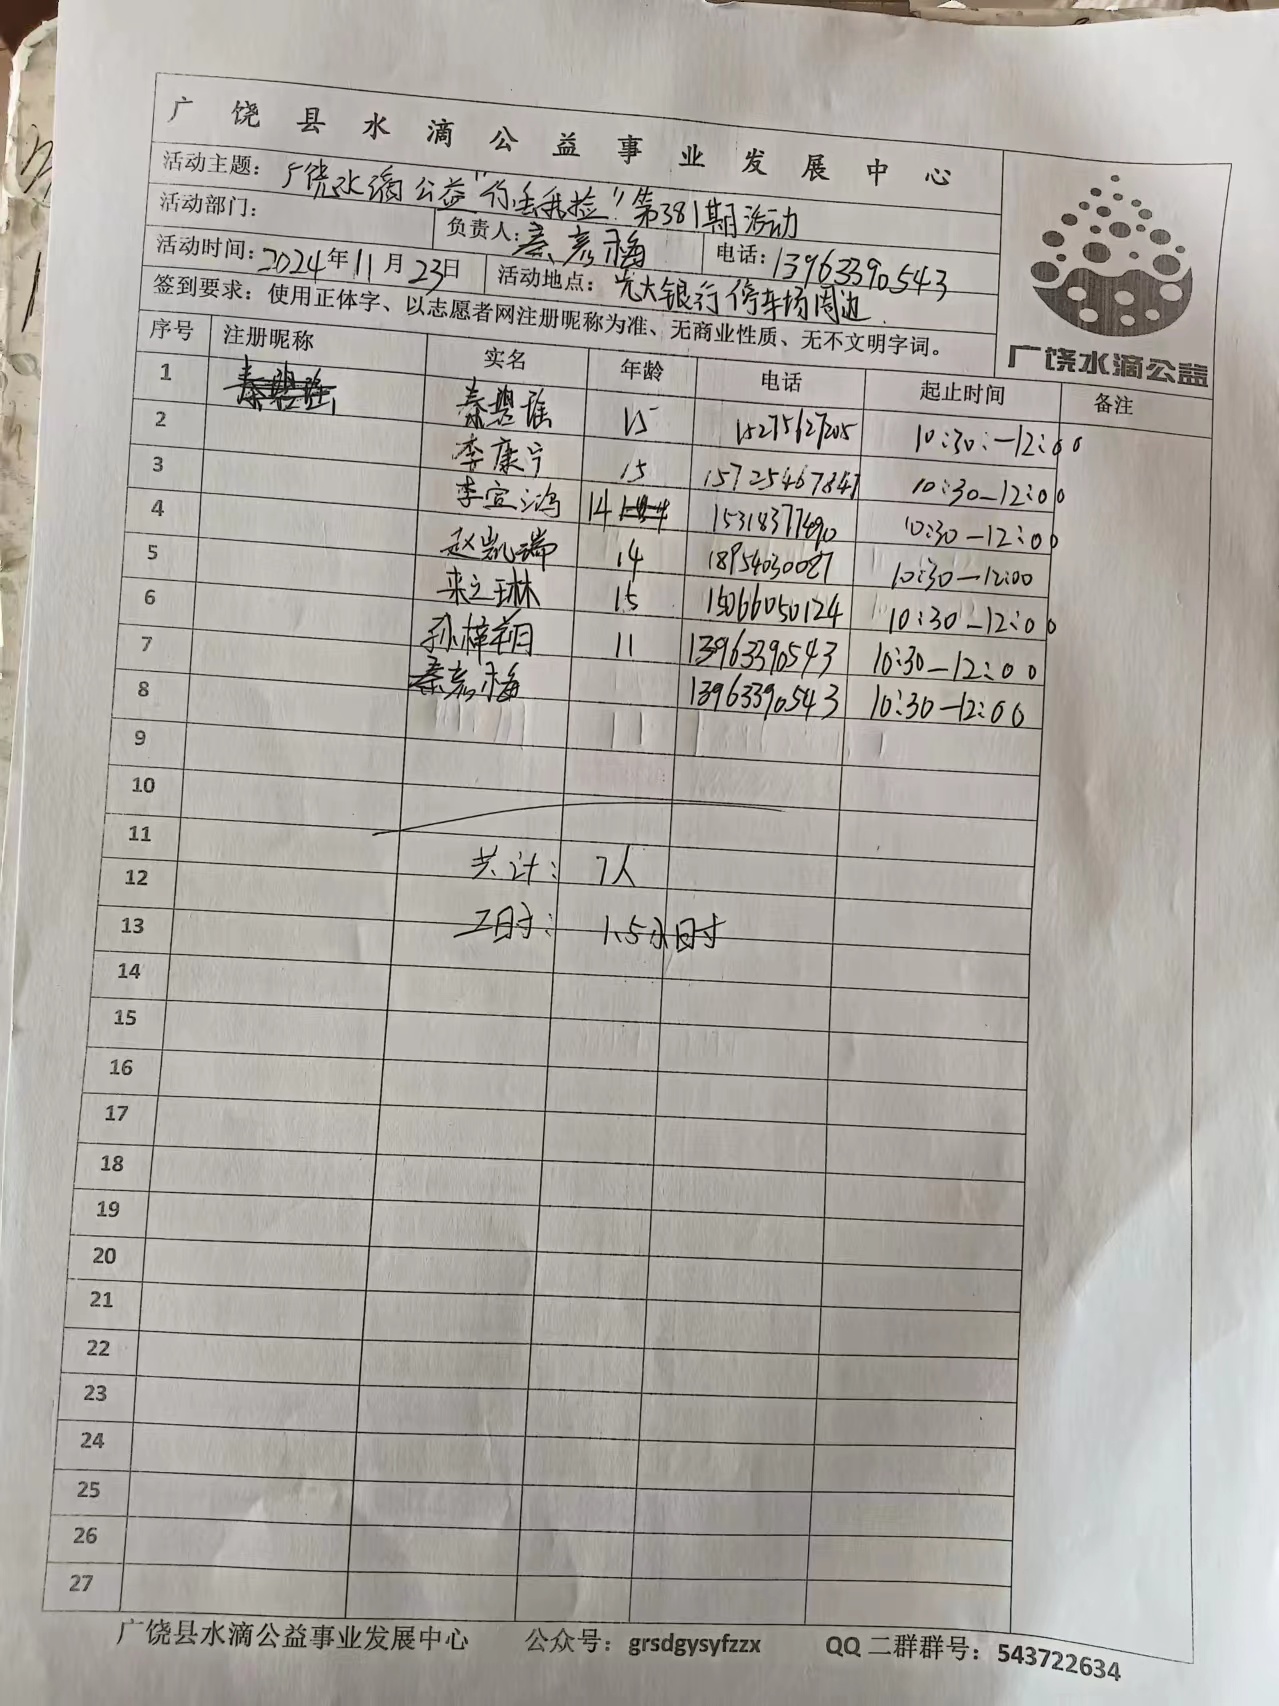 广饶县水滴公益事业发展中心
活动主题：广饶水滴公益"你丢我捡"第381期活动
活动部门： 负责人：秦彦梅 电话：13963390543
活动时间：2024年11月23日 活动地点：光大银行停车场周边
签到要求：使用正体字、以志愿者网注册昵称为准、无商业性质、无不文明字词。
广饶水滴公益
序号 注册昵称 实名 年龄 电话 起止时间 备注
1 秦碧瑶 15 15275627205 10:30:—12:00
2 李康宁 15 15725467847 10:30—12:00
3 李宜鸿 14 15318377490 10:30—12:00
4 赵凯瑞 14 18954030087 10:30—12:00
5 来之琳 15 15066050124 10:30—12:00
6 孙梓 11 13963390543 10:30—12:00
7 秦彦梅 13963390543 10:30—12:00
8
9
10
11
12 共计：7人
13 工时：1.5小时
14
15
16
17
18
19
20
21
22
23
24
25
26
27
广饶县水滴公益事业发展中心 公众号：grsdgysyfzzx QQ 二群群号：543722634